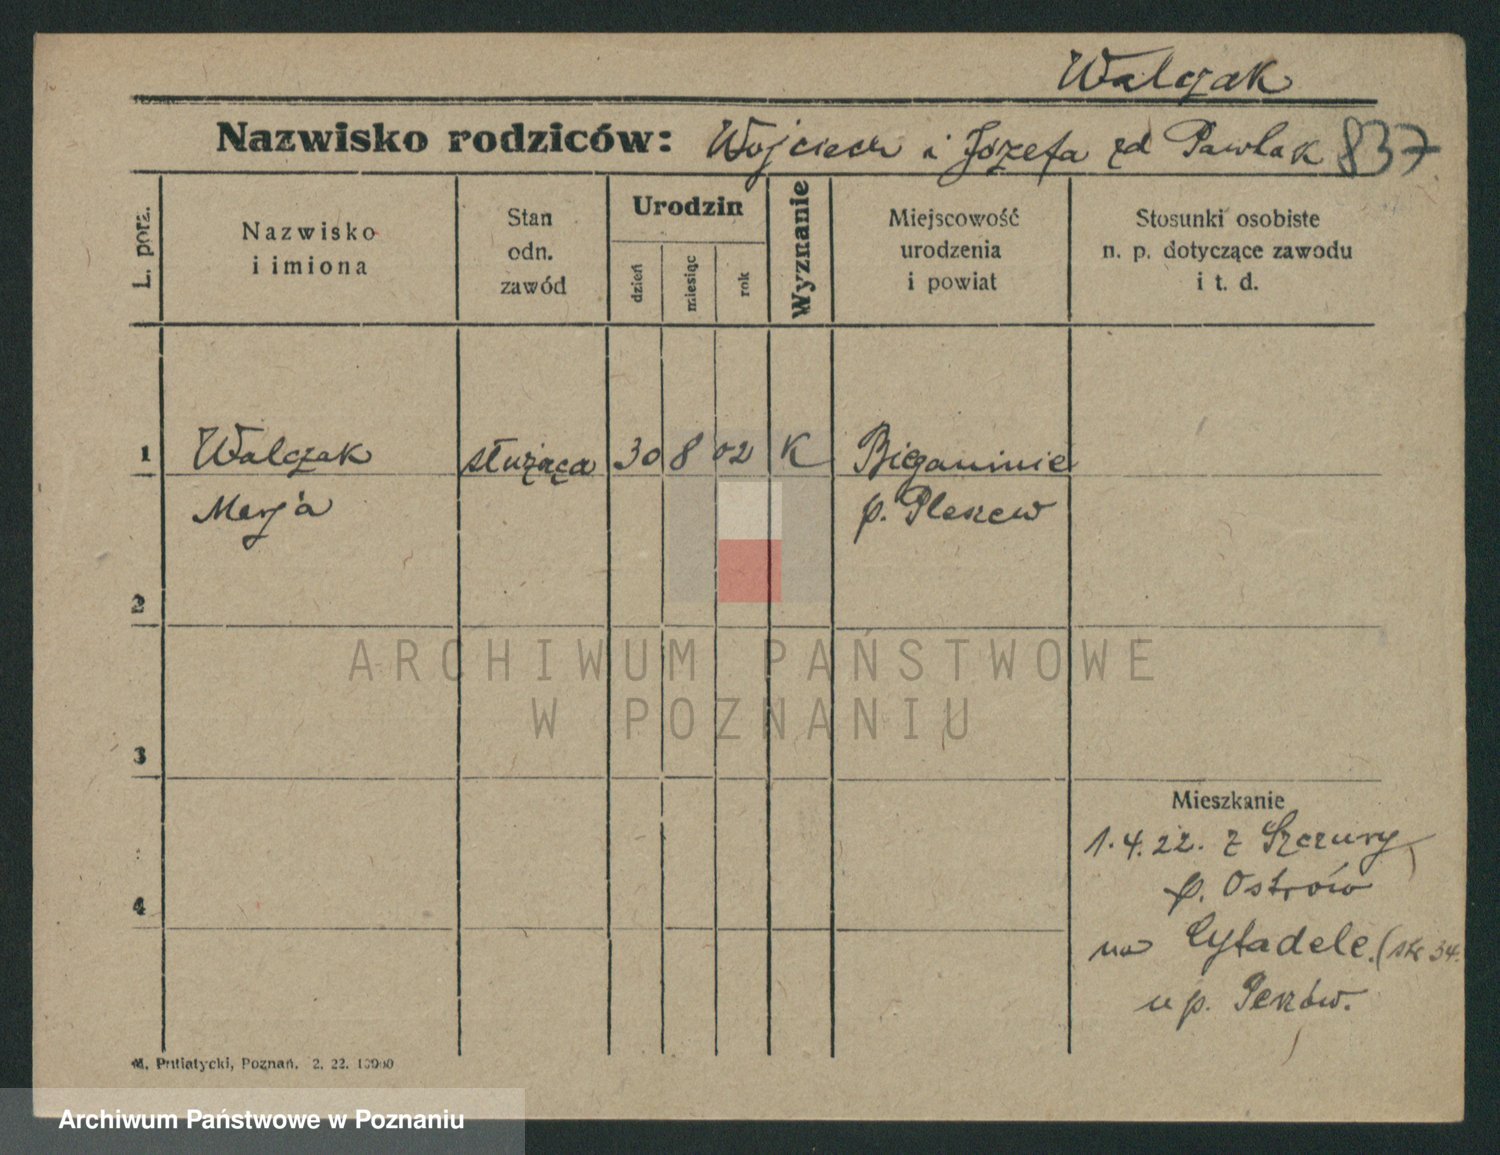 Walczak
Nazwisko rodziców: Wojciech i Józefa zd Pawlak 837
L. porz.
Nazwisko
i imiona
Stan
odn.
zawód
Urodzin
dzień
miesiąc
rok
Wyznanie
Miejscowość
urodzenia
i powiat
Stosunki osobiste
n. p. dotyczące zawodu
i t. d.
1 Walczak służąca 30 8 02 K Bieganinie
Marja p. Pleszew
2
3
4
Mieszkanie
1.4.22. z Szczury
p. Ostrów
na Cytadele. (str 34.
u p.
M. Putiatycki, Poznań. 2. 22.
ARCHIWUM PAŃSTWOWE
W POZNANIU
Archiwum Państwowe w Poznaniu